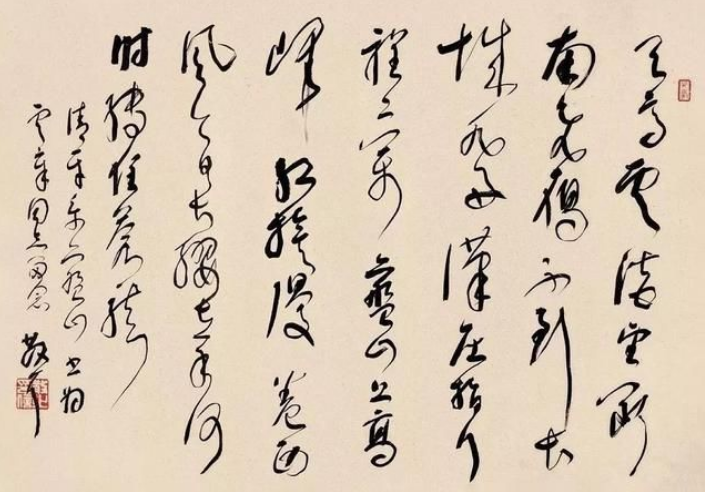 天高雲淡望断
南飞雁不到长
城非好漢屈指行
程二万六盤山上高
峰红旗漫卷西
风今日长缨在手何
时缚住苍龙
清平乐六盤山 书为
同志留念